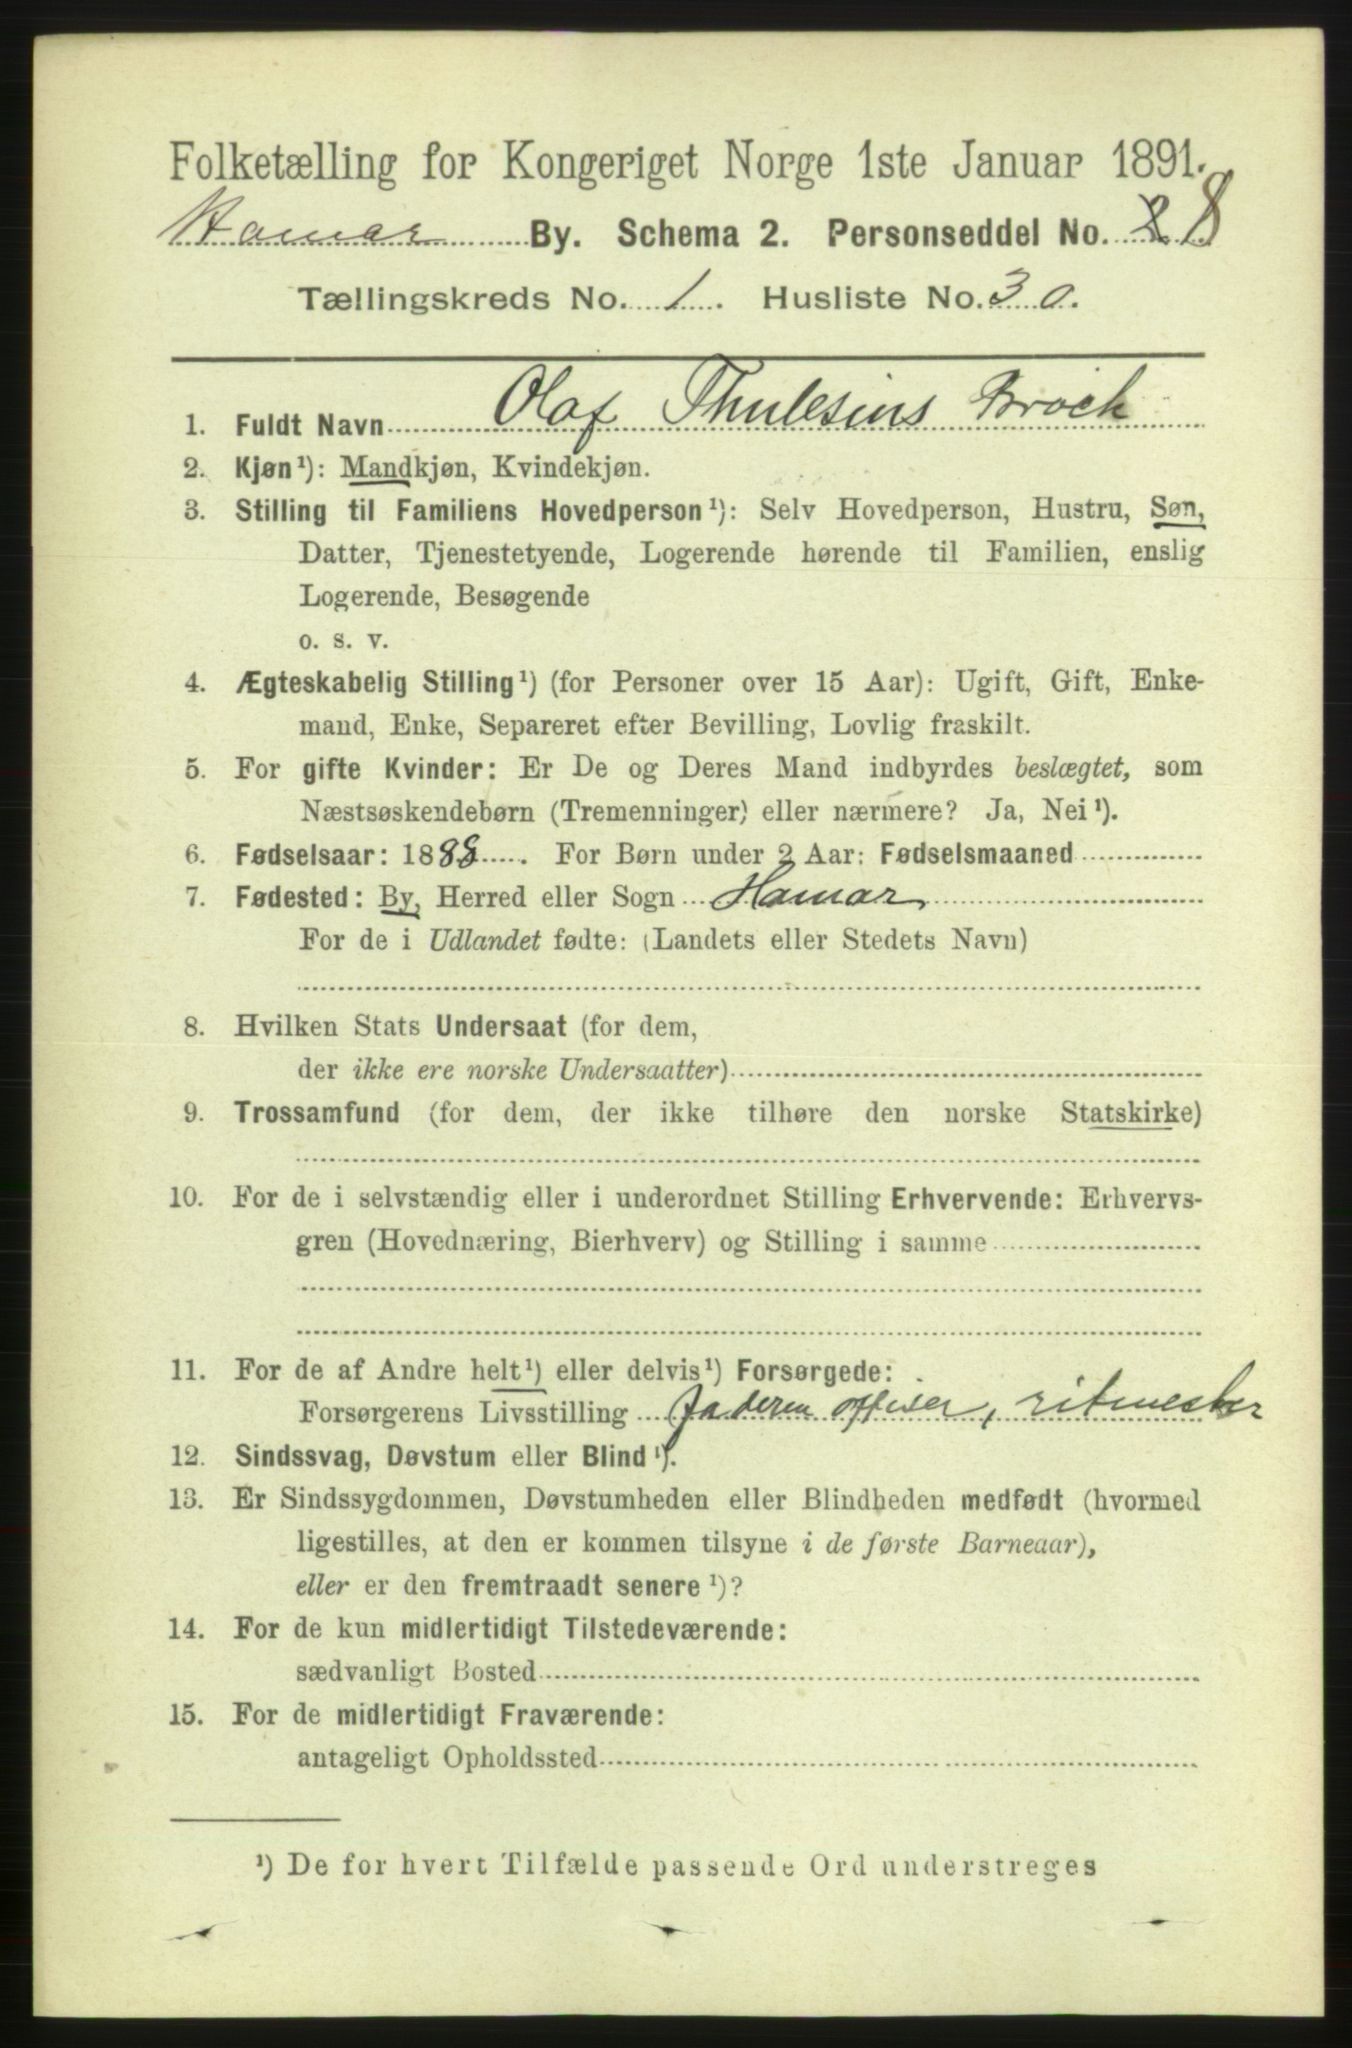 Folketælling for Kongeriget Norge 1ste Januar 1891.
Hamar By. Schema 2. Personseddel No. 8
Tællingskreds No. 1. Husliste No. 30.
1. Fuldt Navn Olaf Thulesius Broch
2. Kjøn¹): Mandkjøn, Kvindekjøn.
3. Stilling til Familiens Hovedperson¹): Selv Hovedperson, Hustru, Søn,
Datter, Tjenestetyende, Logerende hørende til Familien, enslig
Logerende, Besøgende
o. s. v.
4. Ægteskabelig Stilling¹) (for Personer over 15 Aar): Ugift, Gift, Enke-
mand, Enke, Separeret efter Bevilling, Lovlig fraskilt.
5. For gifte Kvinder: Er De og Deres Mand indbyrdes beslægtet, som
Næstsøskendebørn (Tremenninger) eller nærmere? Ja, Nei¹).
6. Fødselsaar: 1888. For Børn under 2 Aar: Fødselsmaaned
7. Fødested: By, Herred eller Sogn Hamar
For de i Udlandet fødte: (Landets eller Stedets Navn)
8. Hvilken Stats Undersaat (for dem,
der ikke ere norske Undersaatter)
9. Trossamfund (for dem, der ikke tilhøre den norske Statskirke)
10. For de i selvstændig eller i underordnet Stilling Erhvervende: Erhvervs-
gren (Hovednæring, Bierhverv) og Stilling i samme
11. For de af Andre helt¹) eller delvis¹) Forsørgede:
Forsørgerens Livsstilling Faderen offiser, ritmester
12. Sindssvag, Døvstum eller Blind¹).
13. Er Sindssygdommen, Døvstumheden eller Blindheden medfødt (hvormed
ligestilles, at den er kommen tilsyne i de første Barneaar),
eller er den fremtraadt senere¹)?
14. For de kun midlertidigt Tilstedeværende:
sædvanligt Bosted
15. For de midlertidigt Fraværende:
antageligt Opholdssted
¹) De for hvert Tilfælde passende Ord understreges